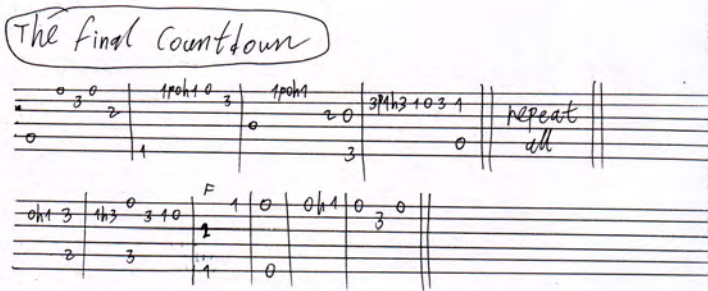 The final Countdown
0 3 0 2 0 1p0h1 0 3 1 1p0h1 0 2 0 3 3p1h3 1 0 3 1 0 repeat
all
F
0h1 3 2 1h3 0 3 1 0 3 1 1 1 0 0 0h1 0 3 0